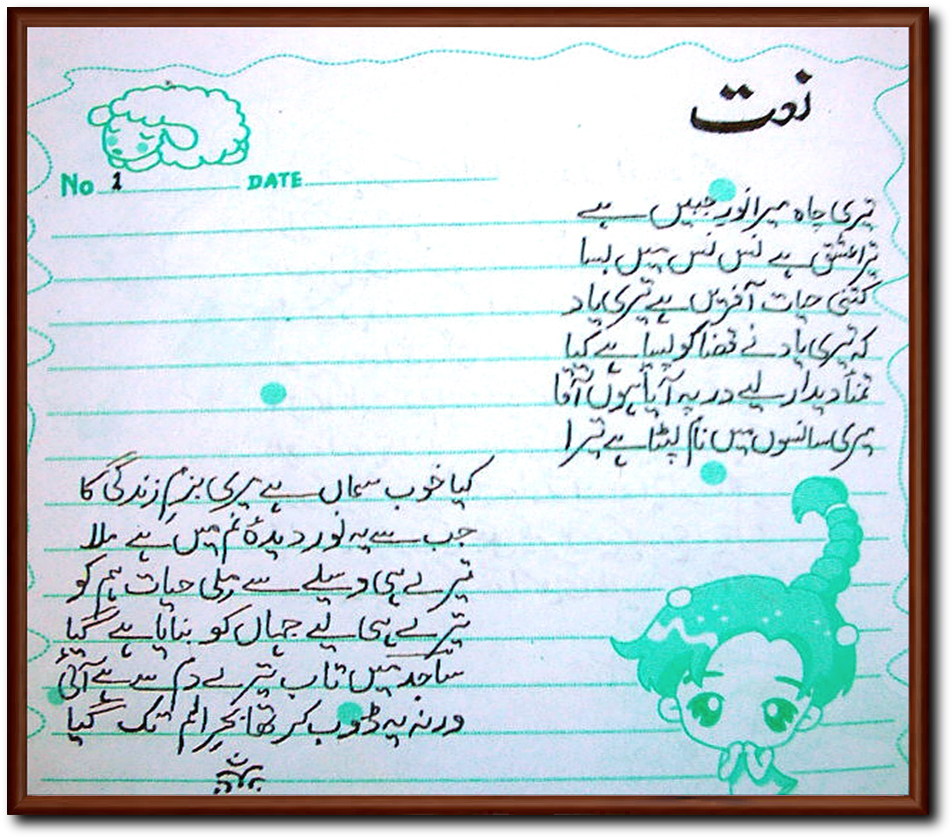 نعت
No 1 DATE
تیری چاہ میرا نورِ جبیں ہے
ترا عشق ہے نس نس میں بسا
کتنی حیات آفریں ہے تیری یاد
کہ تیری یاد نے قضا کو لیا ہے کیا
تمنا دیدار لیے در پہ آیا ہوں آقا
میری سانسوں میں نام لپٹا ہے تیرا
کیا خوب سماں ہے میری بزمِ زندگی کا
جب سے یہ نور دیدۂ نم میں ہے ملا
تیرے ہی وسیلے سے ملی حیات ہم کو
تیرے ہی لیے جہاں کو بنایا ہے گیا
ساجد میں تاب تیرے دم سے ہے آئی
ورنہ یہ ڈوب کر تھا بحرِ الم تک گیا